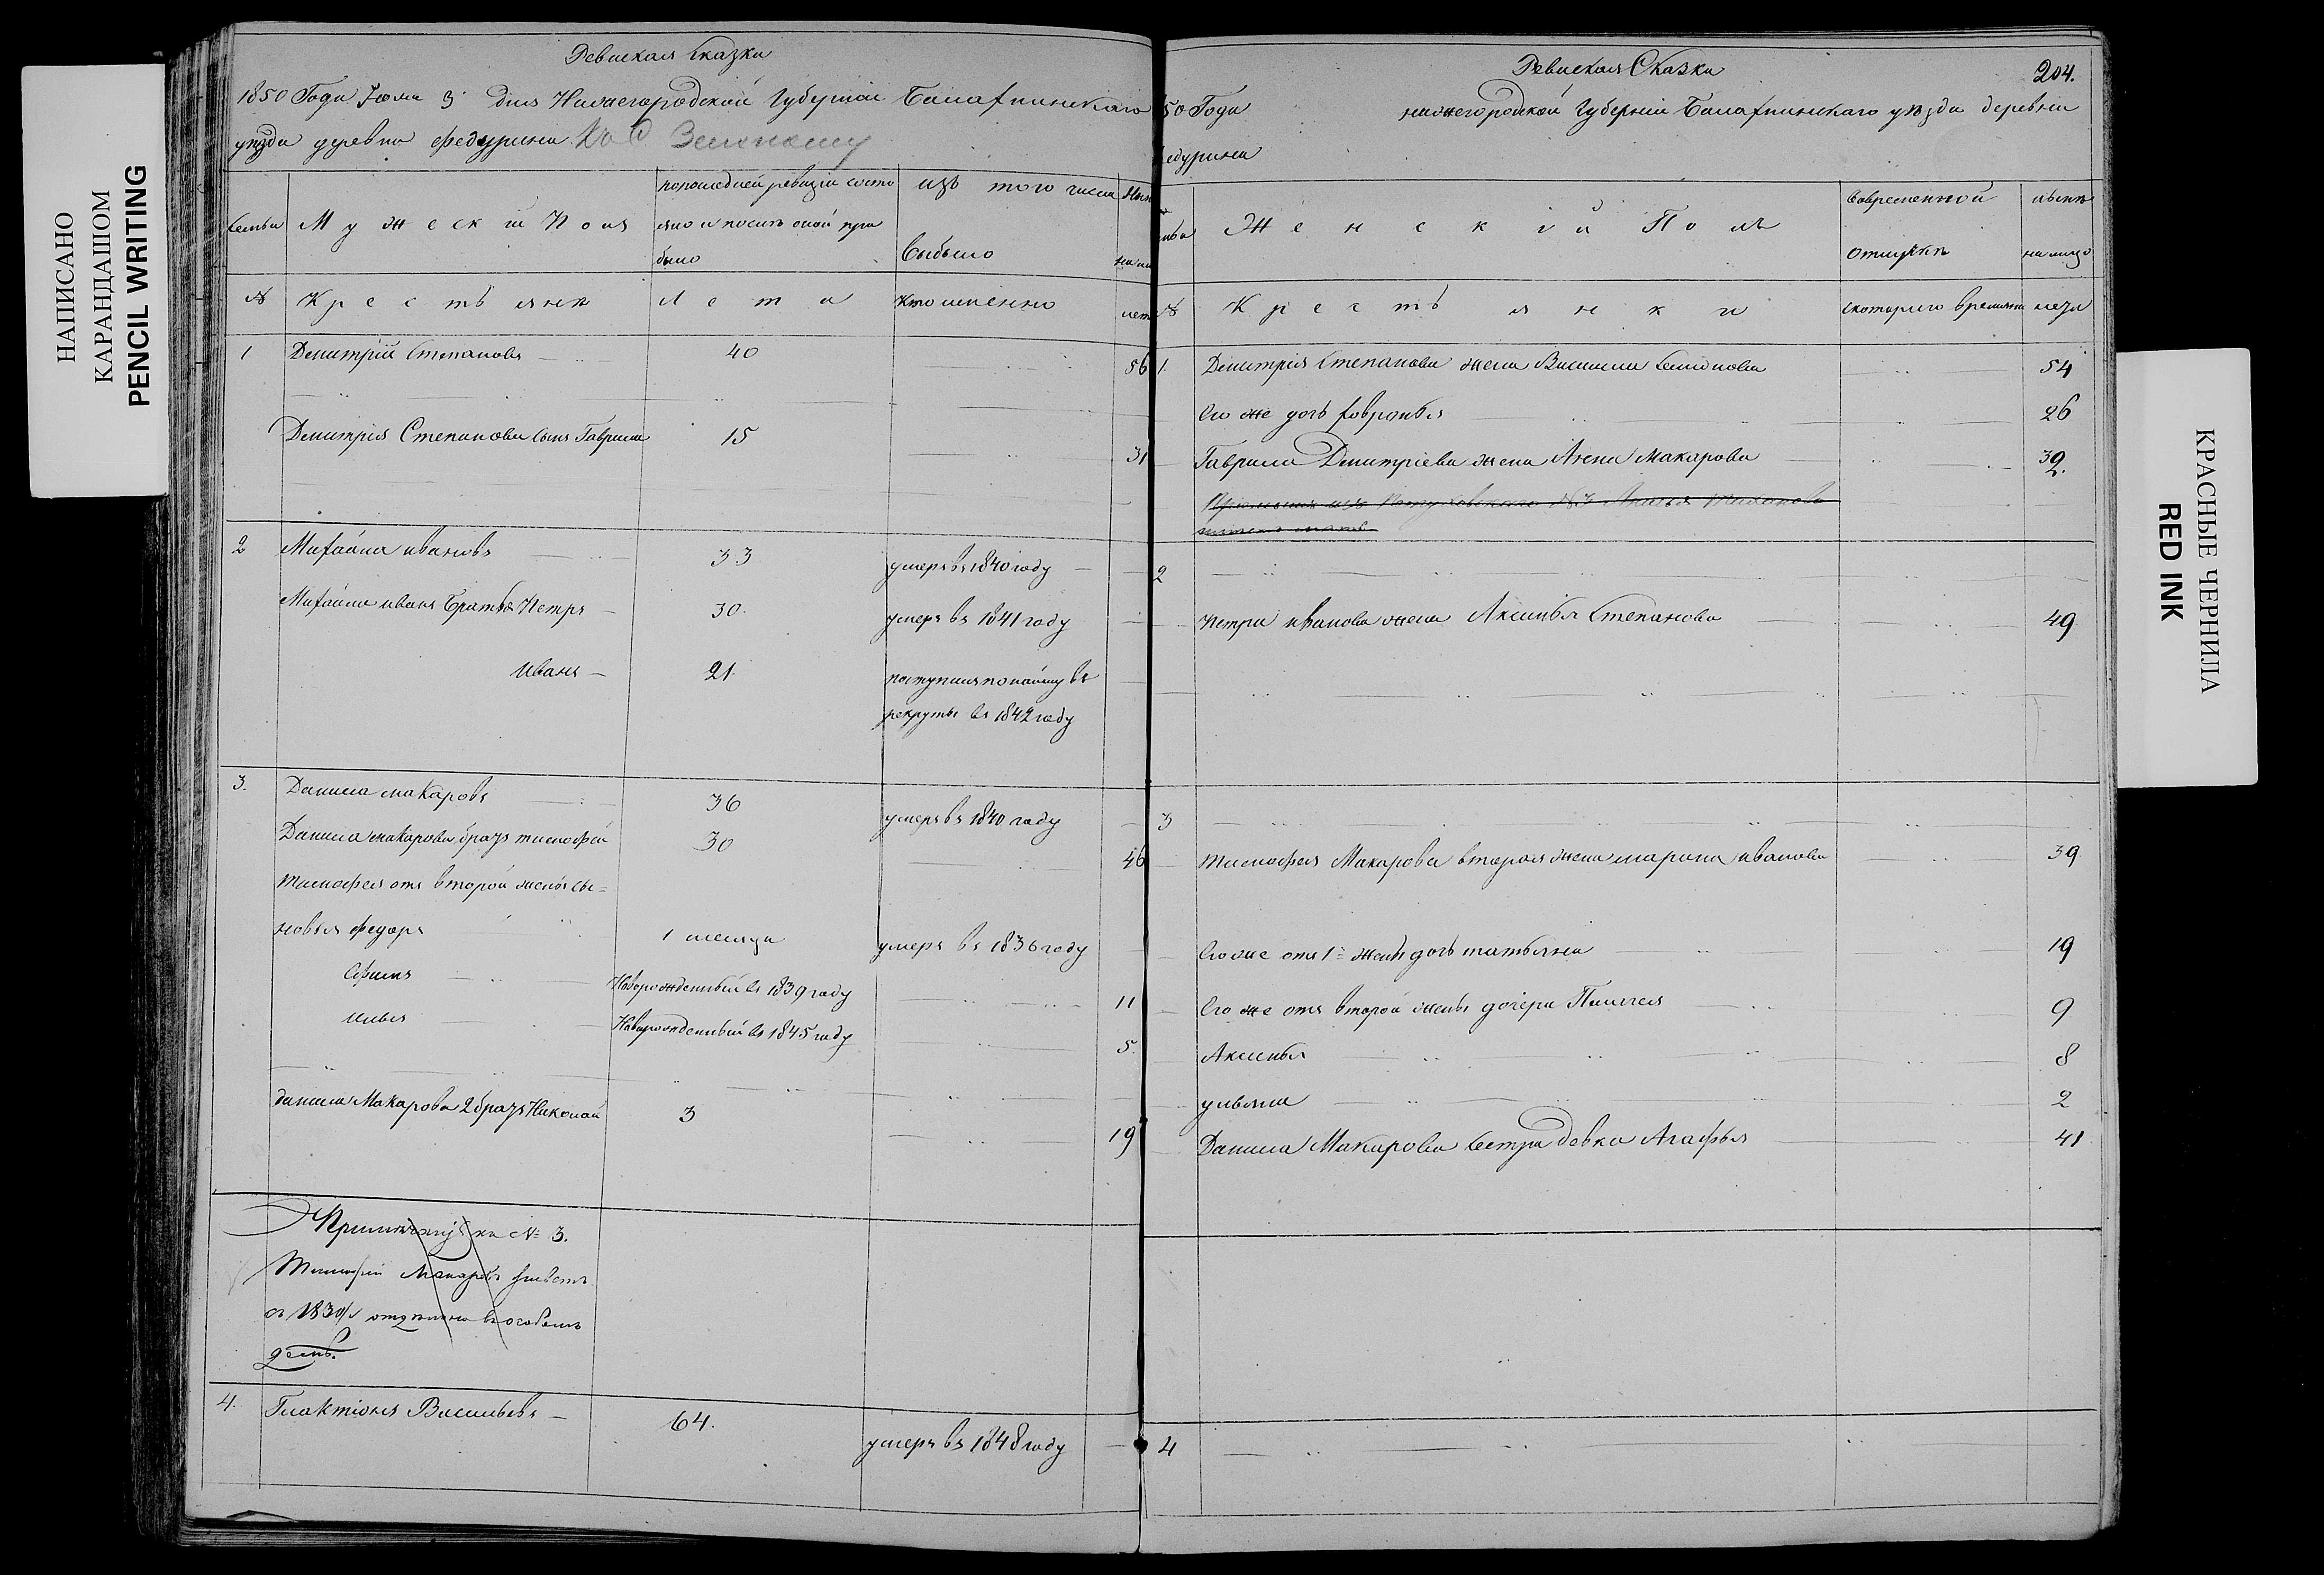 НАПИСАНО
КАРАНДАШОМ
PENCIL WRITING
Ревиская сказка
1850 Года Июля 3 дня Нижегородской Губернии Балахнинскаго
уезда деревни Федурина
Семьи
Мужескій Полъ
попоследней ревизіи состо
яло и после оной при
было
изъ того числа
выбыло
№
Крестьяне
Лета
кто именно
лет
1 Дмитрій Степановъ 40 56
Дмитрія Степанова сынъ Гаврила 15 31
2 Михайла ивановъ 33 умеръ въ 1840 году
Михайла ивана братья Петръ 30. умеръ въ 1841 году
Иванъ 21. поступилъ по найму въ
рекруты въ 1842 году
3. Данила макаровъ 36 умеръ въ 1840 году
Данила макарова братъ тимофей 30 46
Тимофея отъ второй жены сы=
новья федоръ 1 месяца умеръ въ 1836 году
Ефимъ Новорожденный въ 1839 году 11
илья Новорожденный въ 1845 году 5.
данила Макарова 2 братъ Николай 3 19
ка № 3.
Тимофей Макаровъ живетъ
съ 1830 отдельно въ особомъ
доме.
4. Галактіонъ Васильевъ 64. умеръ въ 1848 году
Ревиская Сказка
204.
50 Года нижегородской Губерніи Балахнинскаго уезда деревни
едурина
Женскій Полъ
вовременной
отлучке
ныне
на лицо
№
Крестьянки
скотораго времяни
лета
1. Дмитрія Степанова жена Василиса Семионова 54
Его же дочь Февронья 26
Гаврила Дмитріева жена Анна Макарова 32.
2
Петра иванова жена Аксинья Степанова 49
3
Тимофея Макарова вторая жена марина иванова 39
Его же отъ 1й жены дочь татьяна 19
Его же отъ второй жены дочери Пелагея 9
Аксинья 8
ульяна 2
Данила Макарова сестра девка Агафья 41
4
КРАСНЫЕ ЧЕРНИЛА
RED INK